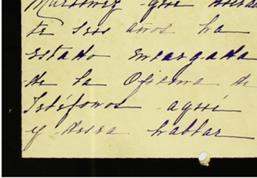 Martinez que
te seis años ha
estado encargada
de la Oficina de
Teléfonos aquí
y desea hablar